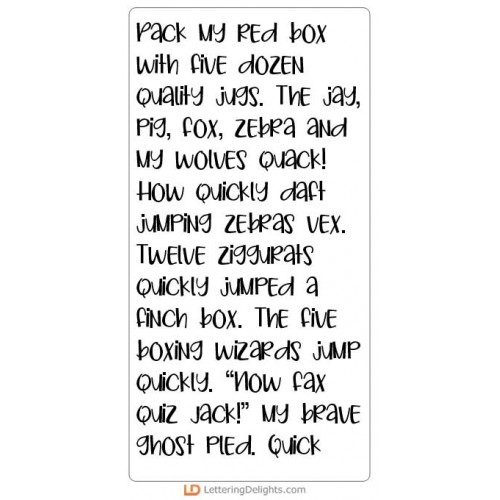 Pack my red box
with five dozen
quality jugs. The jay,
pig, fox, zebra and
my wolves quack!
How quickly daft
jumping zebras vex.
Twelve ziggurats
quickly jumped a
finch box. The five
boxing wizards jump
quickly. “Now fax
quiz Jack!” My brave
ghost pled. Quick
LD LetteringDelights.com